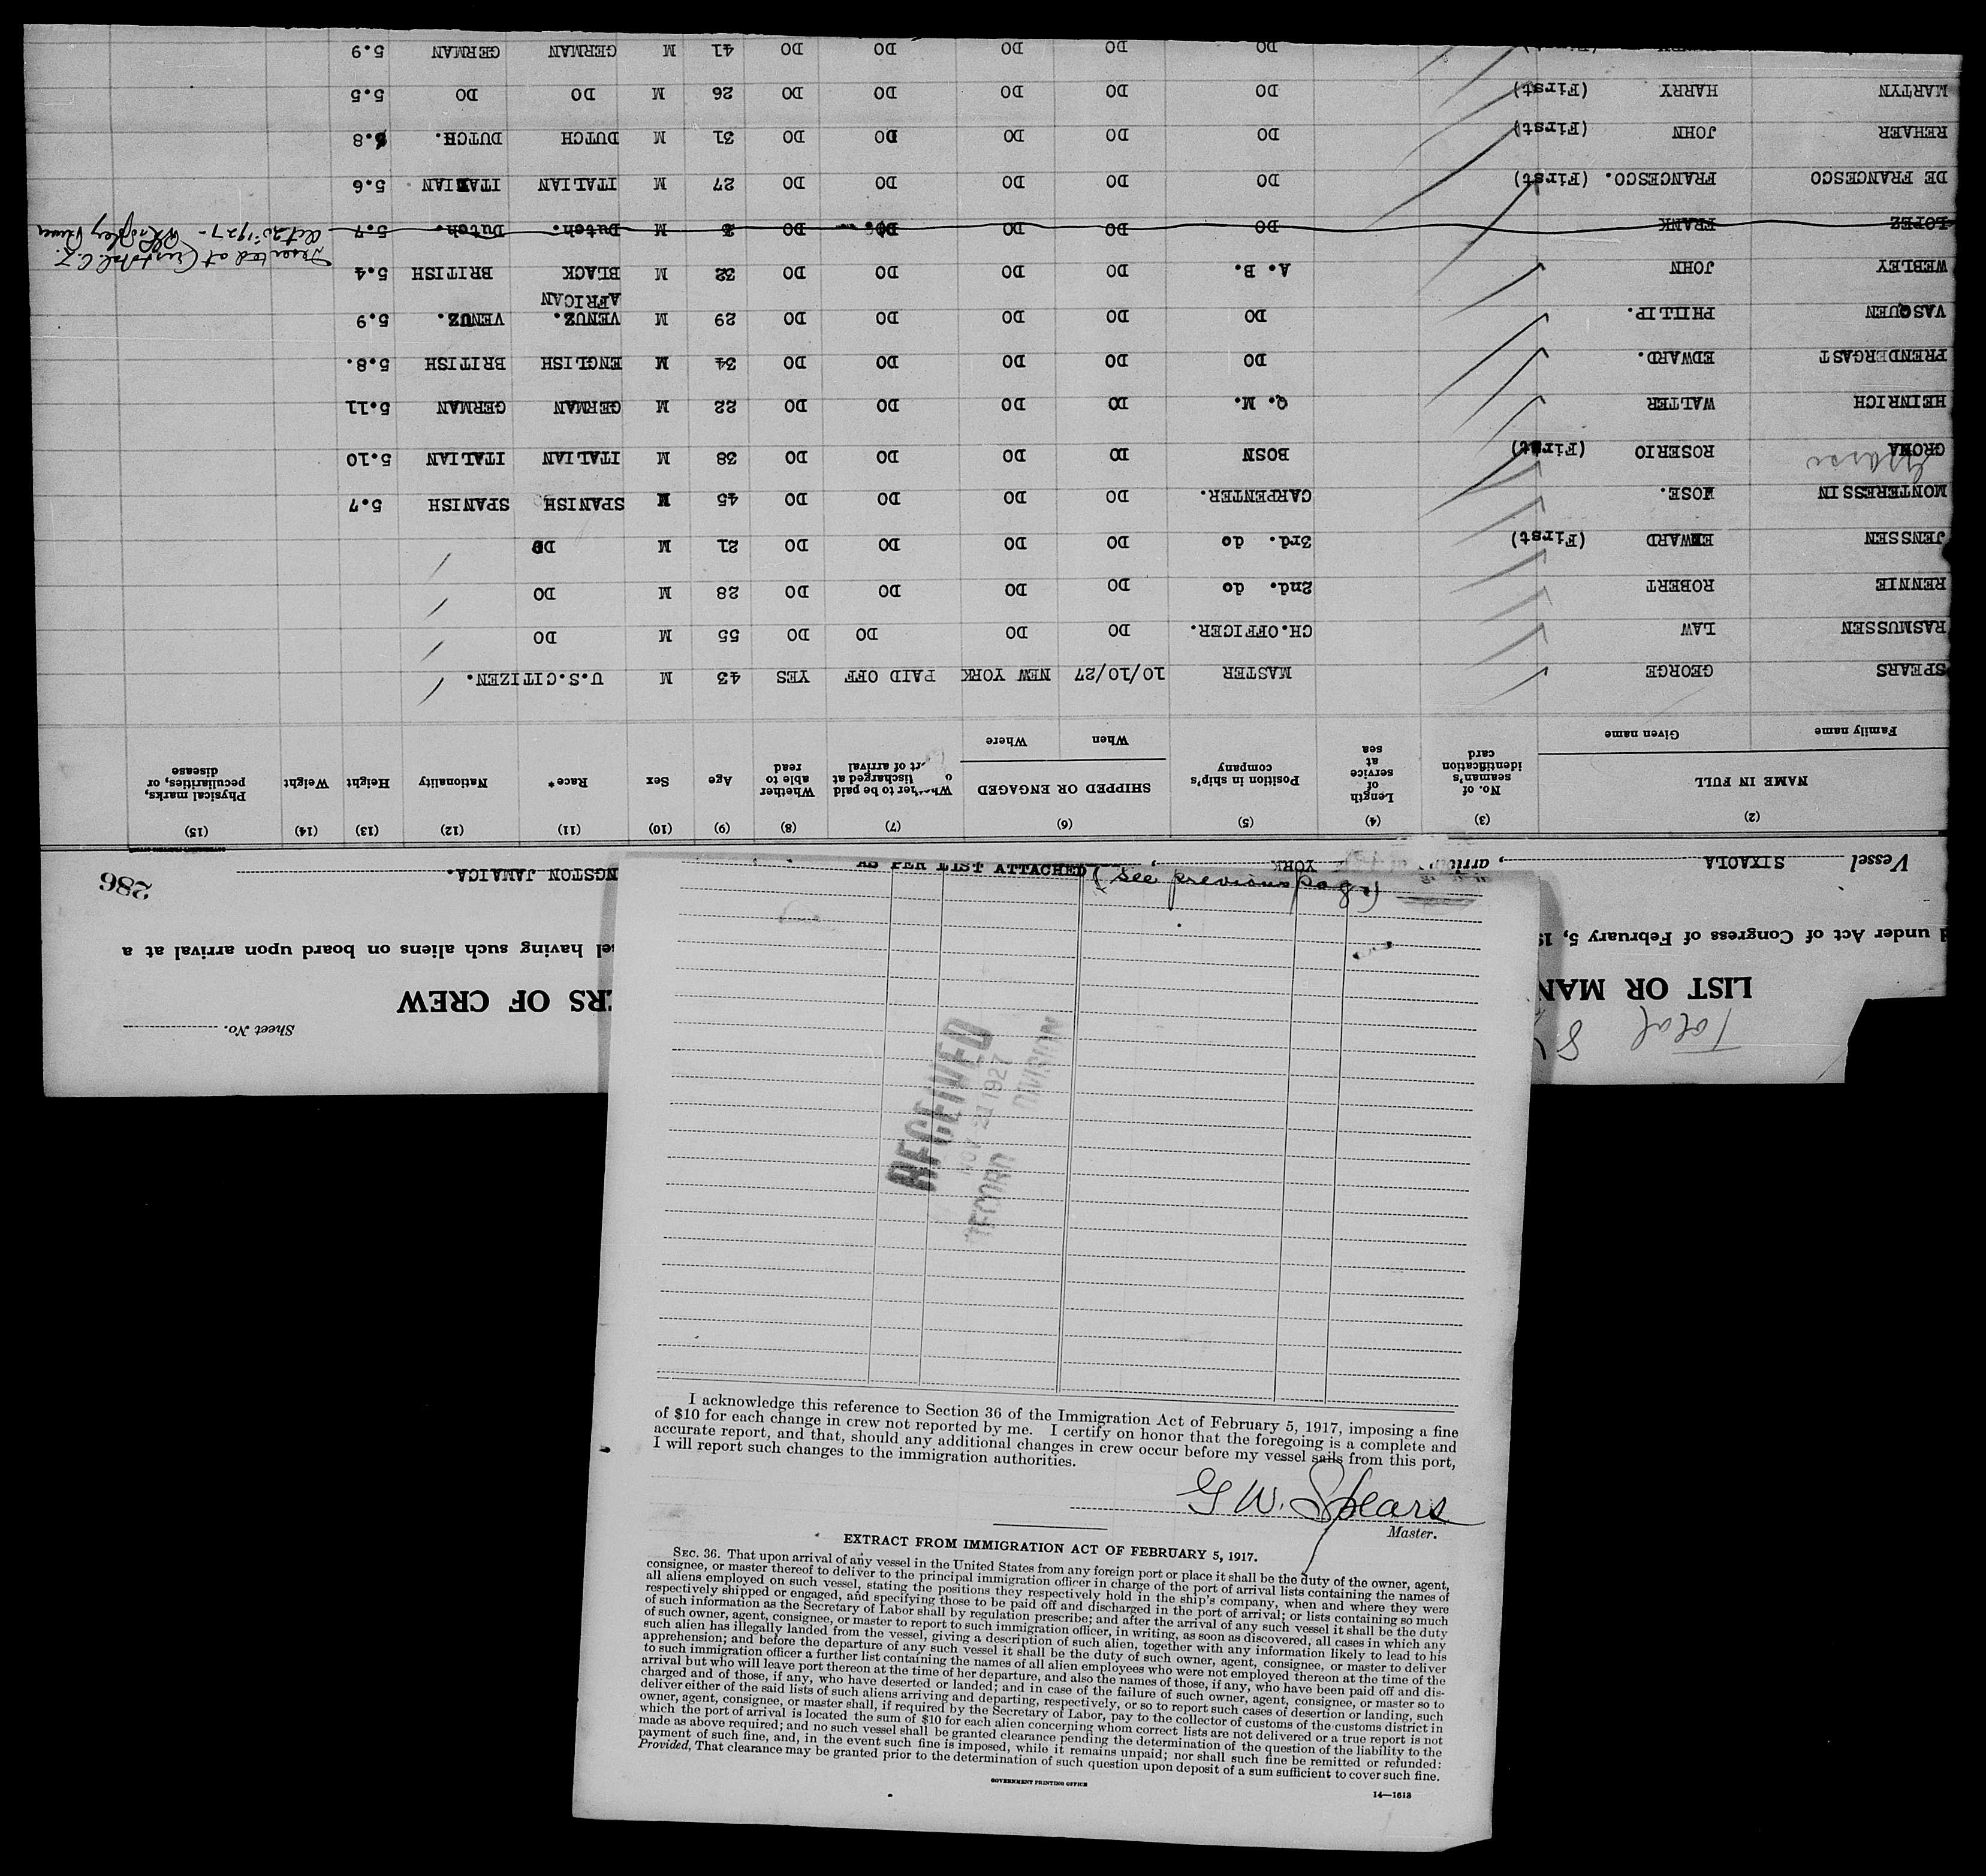 Total 8
Sheet No.
LIST OR MAN
RS OF CREW
under Act of Congress of February 5, 19
el having such aliens on board upon arrival at a
286
Vessel SIXAOLA, arriv YORK, NGSTON JAMAICA.
(2) (3) (4) (5) (6) (7) (8) (9) (10) (11) (12) (13) (14) (15)
NAME IN FULL No. of seaman's identification card Length of service at sea Position in ship's company SHIPPED OR ENGAGED to be paid discharged at of arrival Whether able to read Age Sex Race* Nationality Height Weight Physical marks, peculiarities, or disease
Family name Given name When Where
SPEARS GEORGE MASTER 10/10/27 NEW YORK PAID OFF YES 43 M U.S.CITIZEN.
RASMUSSEN LAW CH.OFFICER. DO DO DO DO 55 M DO
RENNIE ROBERT 2nd. do DO DO DO DO 28 M DO
JENSSEN EDWARD (First) 3rd. do DO DO DO DO 21 M DO
MONTERESSIN HOSE. CARPENTER. DO DO DO DO 45 M SPANISH SPANISH 5.7
GRONA ROSERIO (First) BOSN DO DO DO DO 38 M ITALIAN ITALIAN 5.10
HEINRICH WALTER Q. M. DO DO DO DO 22 M GERMAN GERMAN 5.11
PRENDERGAST EDWARD. DO DO DO DO DO 34 M ENGLISH BRITISH 5.8.
VASQUEN PHILLIP. DO DO DO DO DO 29 M VENUZ. VENUZ. 5.9
AFRICAN
WEBLEY JOHN A. B. DO DO DO DO 32 M BLACK BRITISH 5.4
Deserted at Cristobal C.Z.
LOPEZ FRANK DO DO DO DO DO M Dutch. Dutch. 5.7 Oct 20th 1927 -
DE FRANCESCO FRANCESCO. (First) DO DO DO DO DO 27 M ITALIAN ITALIAN 5.6
REHAER JOHN (First) DO DO DO DO DO 31 M DUTCH DUTCH. 5.8
MARTYN HARRY (First) DO DO DO DO DO 26 M DO DO 5.5
(First) DO DO DO DO DO 41 M GERMAN GERMAN 5.9
AS PER LIST ATTACHED (see previous page)
RECEIVED
NOV 21 1927
RECORD DIVISION
I acknowledge this reference to Section 36 of the Immigration Act of February 5, 1917, imposing a fine
of $10 for each change in crew not reported by me. I certify on honor that the foregoing is a complete and
accurate report, and that, should any additional changes in crew occur before my vessel sails from this port,
I will report such changes to the immigration authorities.
G W. Spears
Master.
EXTRACT FROM IMMIGRATION ACT OF FEBRUARY 5, 1917.
SEC. 36. That upon arrival of any vessel in the United States from any foreign port or place it shall be the duty of the owner, agent,
consignee, or master thereof to deliver to the principal immigration officer in charge of the port of arrival lists containing the names of
all aliens employed on such vessel, stating the positions they respectively hold in the ship's company, when and where they were
respectively shipped or engaged, and specifying those to be paid off and discharged in the port of arrival; or lists containing so much
of such information as the Secretary of Labor shall by regulation prescribe; and after the arrival of any such vessel it shall be the duty
of such owner, agent, consignee, or master to report to such immigration officer, in writing, as soon as discovered, all cases in which any
such alien has illegally landed from the vessel, giving a description of such alien, together with any information likely to lead to his
apprehension; and before the departure of any such vessel it shall be the duty of such owner, agent, consignee, or master to deliver
to such immigration officer a further list containing the names of all alien employees who were not employed thereon at the time of the
arrival but who will leave port thereon at the time of her departure, and also the names of those, if any, who have been paid off and dis-
charged and of those, if any, who have deserted or landed; and in case of the failure of such owner, agent, consignee, or master so to
deliver either of the said lists of such aliens arriving and departing, respectively, or so to report such cases of desertion or landing, such
owner, agent, consignee, or master shall, if required by the Secretary of Labor, pay to the collector of customs of the customs district in
which the port of arrival is located the sum of $10 for each alien concerning whom correct lists are not delivered or a true report is not
made as above required; and no such vessel shall be granted clearance pending the determination of the question of the liability to the
payment of such fine, and, in the event such fine is imposed, while it remains unpaid; nor shall such fine be remitted or refunded:
Provided, That clearance may be granted prior to the determination of such question upon deposit of a sum sufficient to cover such fine.
GOVERNMENT PRINTING OFFICE
14—1613